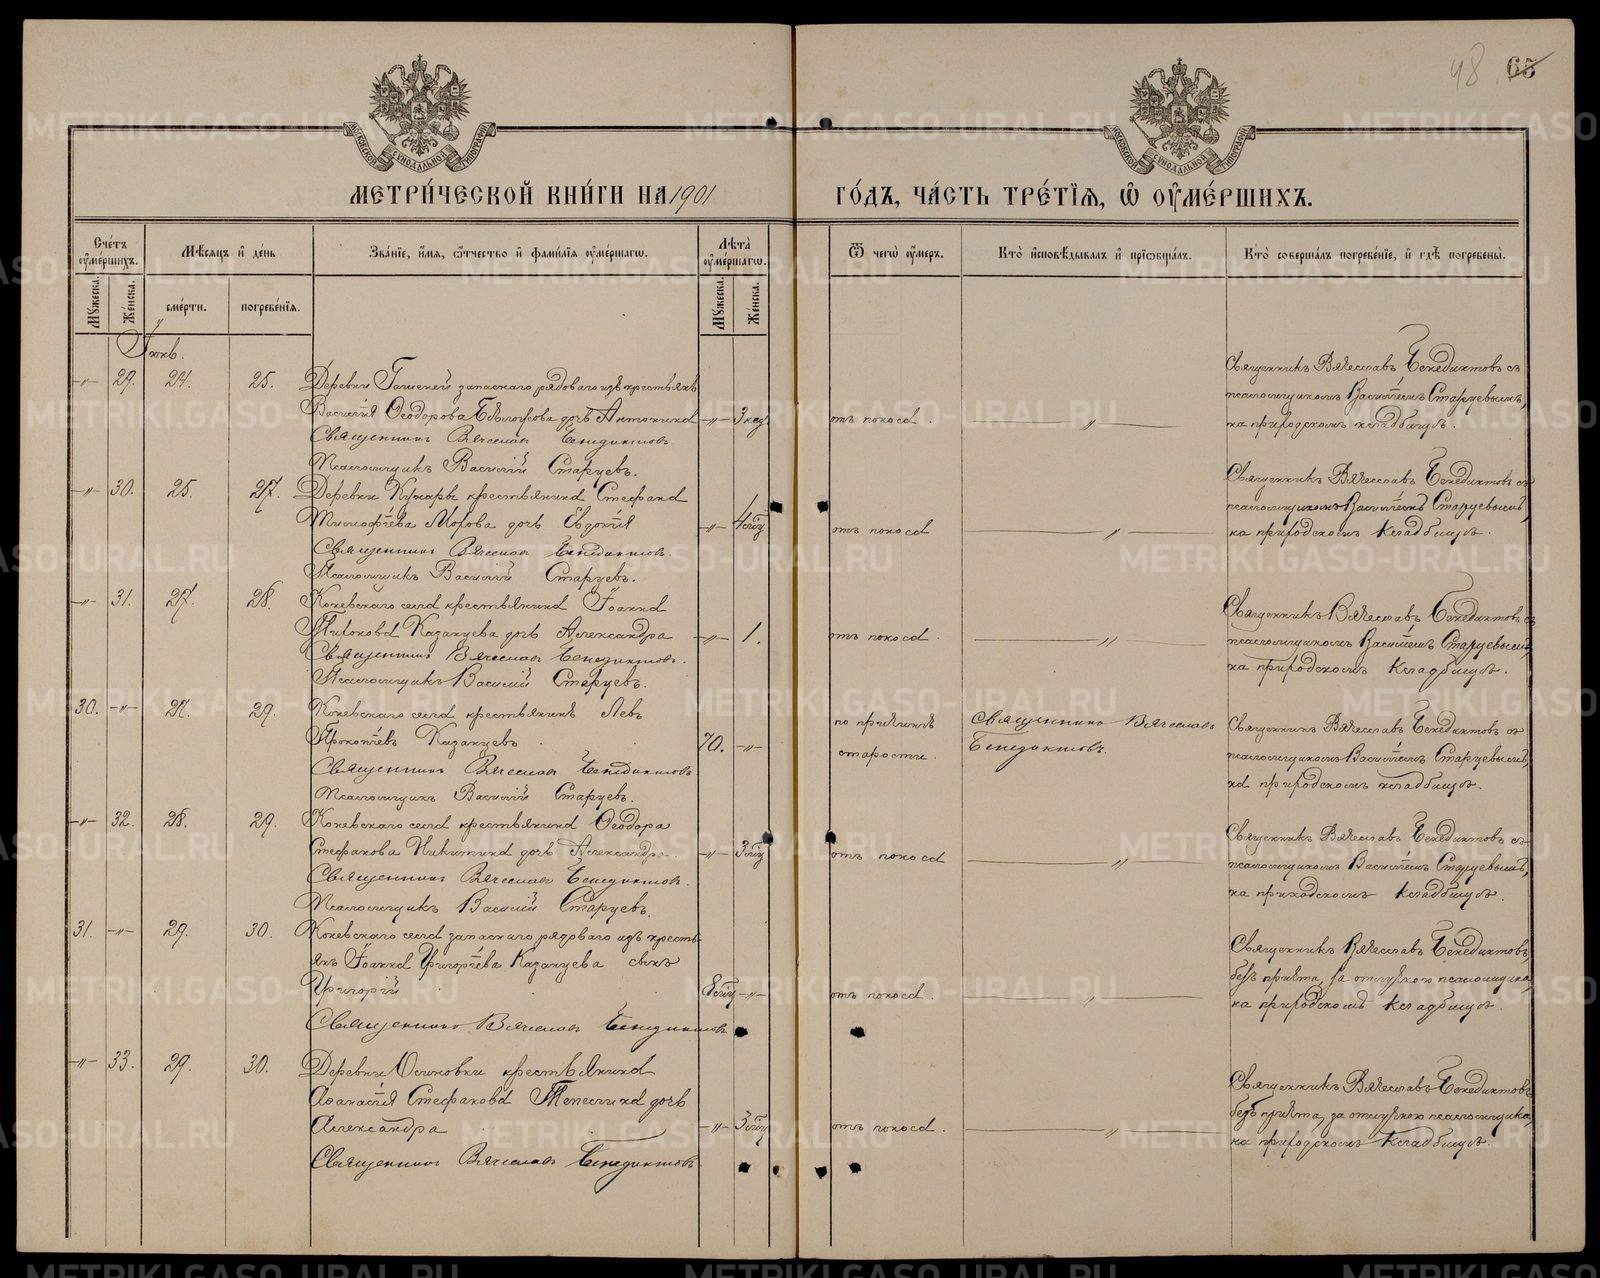 48 65
МОСКОВСКОЙ СѴНОДАЛЬНОЙ ТИПОГРАФІИ
МОСКОВСКОЙ СѴНОДАЛЬНОЙ ТИПОГРАФІИ
МЕТРИ́ЧЕСКОЙ КНИ́ГИ НА 1901
ГО́ДЪ, ЧА́СТЬ ТРЕ́ТІЯ, Ѡ ОУМЕ́РШИХЪ.
Счетъ оумершихъ.
Мѣсяцъ и день
Званіе, имя, отчество и фамилія оумершаго.
Лѣта оумершаго.
Мужеска.
Женска.
смерти.
погребенія.
Мужеска.
Женска.
Ѿ чего оумеръ.
Кто исповѣдывалъ и пріобщалъ.
Кто совершалъ погребеніе, и гдѣ погребены.
Іюнь.
-„- 29. 24. 25.
запаснаго рядоваго изъ крестьянъ
Василія Ѳеодорова дочь Антонина -„- 3 нед.
Священникъ Вячеславъ Бенедиктовъ.
Псаломщикъ Василій Старцевъ.
отъ поноса. —„—
Священникъ Вячеславъ Бенедиктовъ съ
псаломщикомъ Василіемъ Старцевымъ,
на приходскомъ кладбищѣ.
-„- 30. 25. 27.
Деревни крестьянина Стефана
дочь Евдокія -„- 4 мѣс.
Священникъ Вячеславъ Бенедиктовъ.
Псаломщикъ Василій Старцевъ.
отъ поноса —„—
Священникъ Вячеславъ Бенедиктовъ съ
псаломщикомъ Василіемъ Старцевымъ,
на приходскомъ кладбищѣ.
-„- 31. 27. 28.
Коневскаго села крестьянина Іоанна
Казанцева дочь Александра -„- 1.
Священникъ Вячеславъ Бенедиктовъ.
Псаломщикъ Василій Старцевъ.
отъ поноса. —„—
Священникъ Вячеславъ Бенедиктовъ съ
псаломщикомъ Василіемъ Старцевымъ,
на приходскомъ кладбищѣ.
30. -„- 27. 29.
Коневскаго села крестьянинъ Левъ
Прокопіевъ Казанцевъ 70. -„-
Священникъ Вячеславъ Бенедиктовъ
Псаломщикъ Василій Старцевъ.
по причинѣ
старости.
Священникъ Вячеславъ
Бенедиктовъ.
Священникъ Вячеславъ Бенедиктовъ съ
псаломщикомъ Василіемъ Старцевымъ,
на приходскомъ кладбищѣ.
-„- 32. 28. 29.
Коневскаго села крестьянина Ѳеодора
Стефанова Никитина дочь Александра. -„- 3 мѣс.
Священникъ Вячеславъ Бенедиктовъ.
Псаломщикъ Василій Старцевъ.
отъ поноса —„—
Священникъ Вячеславъ Бенедиктовъ съ
псаломщикомъ Василіемъ Старцевымъ,
на приходскомъ кладбищѣ.
31. -„- 29. 30.
Коневскаго села запаснаго рядоваго изъ кресть-
янъ Іоанна Григоріева Казанцева сынъ
Григорій 8 мѣс. -„-
Священникъ Вячеславъ Бенедиктовъ
отъ поноса. —„—
Священникъ Вячеславъ Бенедиктовъ,
безъ причта, за отлучкою псаломщика,
на приходскомъ кладбищѣ.
-„- 33. 29. 30.
Деревни Осиновки крестьянина
Аѳанасія Стефанова дочь
Александра -„- 3 мѣс.
Священникъ Вячеславъ Бенедиктовъ
отъ поноса. —„—
Священникъ Вячеславъ Бенедиктовъ
безъ причта, за отлучкою псаломщика,
на приходскомъ кладбищѣ.
METRIKI.GASO-URAL.RU